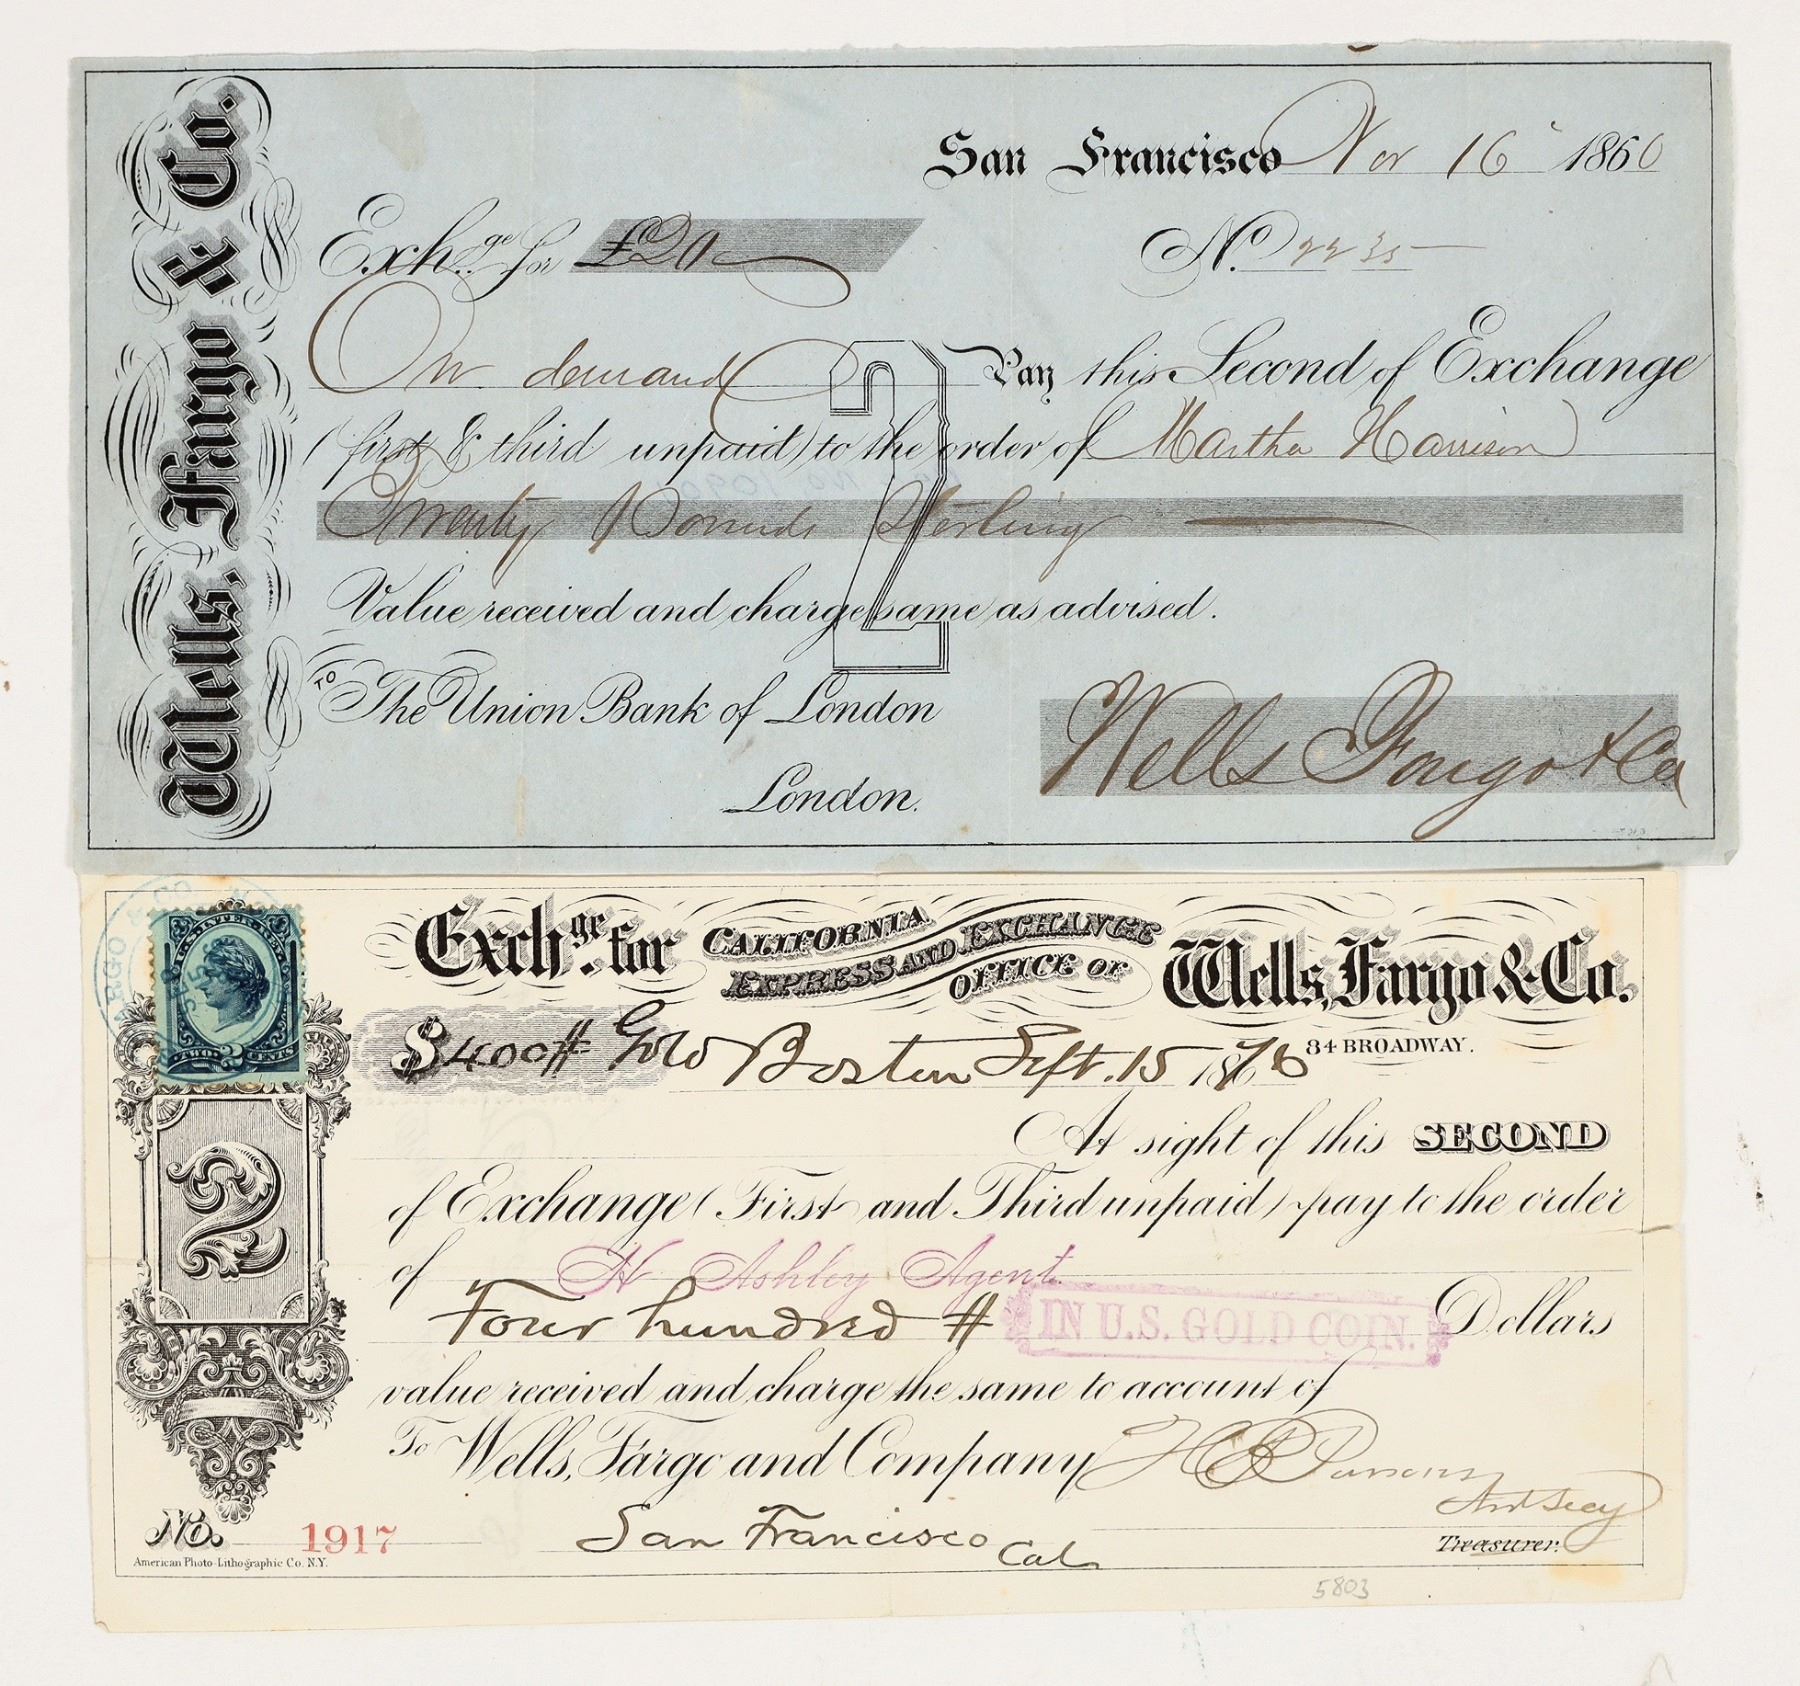 Wells, Fargo & Co.
San Francisco Nov 16 1860
Exchge for £20
No. 2235
On demand Pay this Second of Exchange
(first & third unpaid) to the order of Martha Harrison
2
Twenty Pounds Sterling
Value received and charge same as advised.
TO The Union Bank of London
London.
Wells Fargo & Co
Exchge. for CALIFORNIA EXPRESS AND EXCHANGE OFFICE OF Wells, Fargo & Co.
84 BROADWAY.
$400# Gold Boston Sept. 15 1876
TWO 2 CENTS
At sight of this SECOND
2
of Exchange (First and Third unpaid) pay to the order
of H Ashley Agent
Four hundred # IN U.S. GOLD COIN. Dollars
value received and charge the same to account of
To Wells, Fargo and Company
San Francisco Cal
Treasurer.
No. 1917
American Photo-Lithographic Co. N.Y.
5803